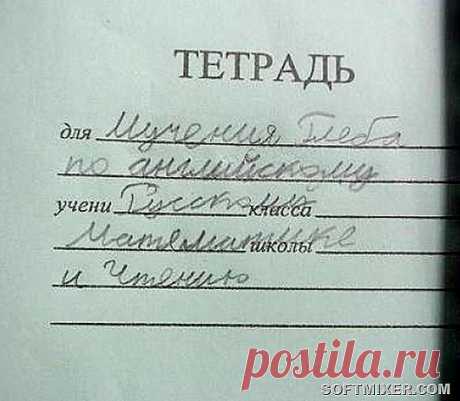 ТЕТРАДЬ
для Мучения Глеба
по английскому
учени Русскому класса
Матяматике школы
и Чтению
postila.ru
SOFTMIXER.COM